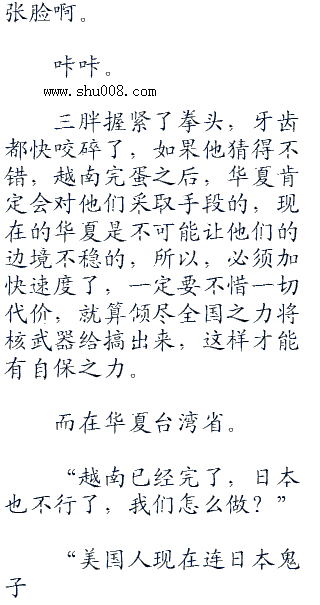 张脸啊。
咔咔。
www.shu008.com
三胖握紧了拳头，牙齿
都快咬碎了，如果他猜得不
错，越南完蛋之后，华夏肯
定会对他们采取手段的，现
在的华夏是不可能让他们的
边境不稳的，所以，必须加
快速度了，一定要不惜一切
代价，就算倾尽全国之力将
核武器给搞出来，这样才能
有自保之力。
而在华夏台湾省。
“越南已经完了，日本
也不行了，我们怎么做？”
“美国人现在连日本鬼
子